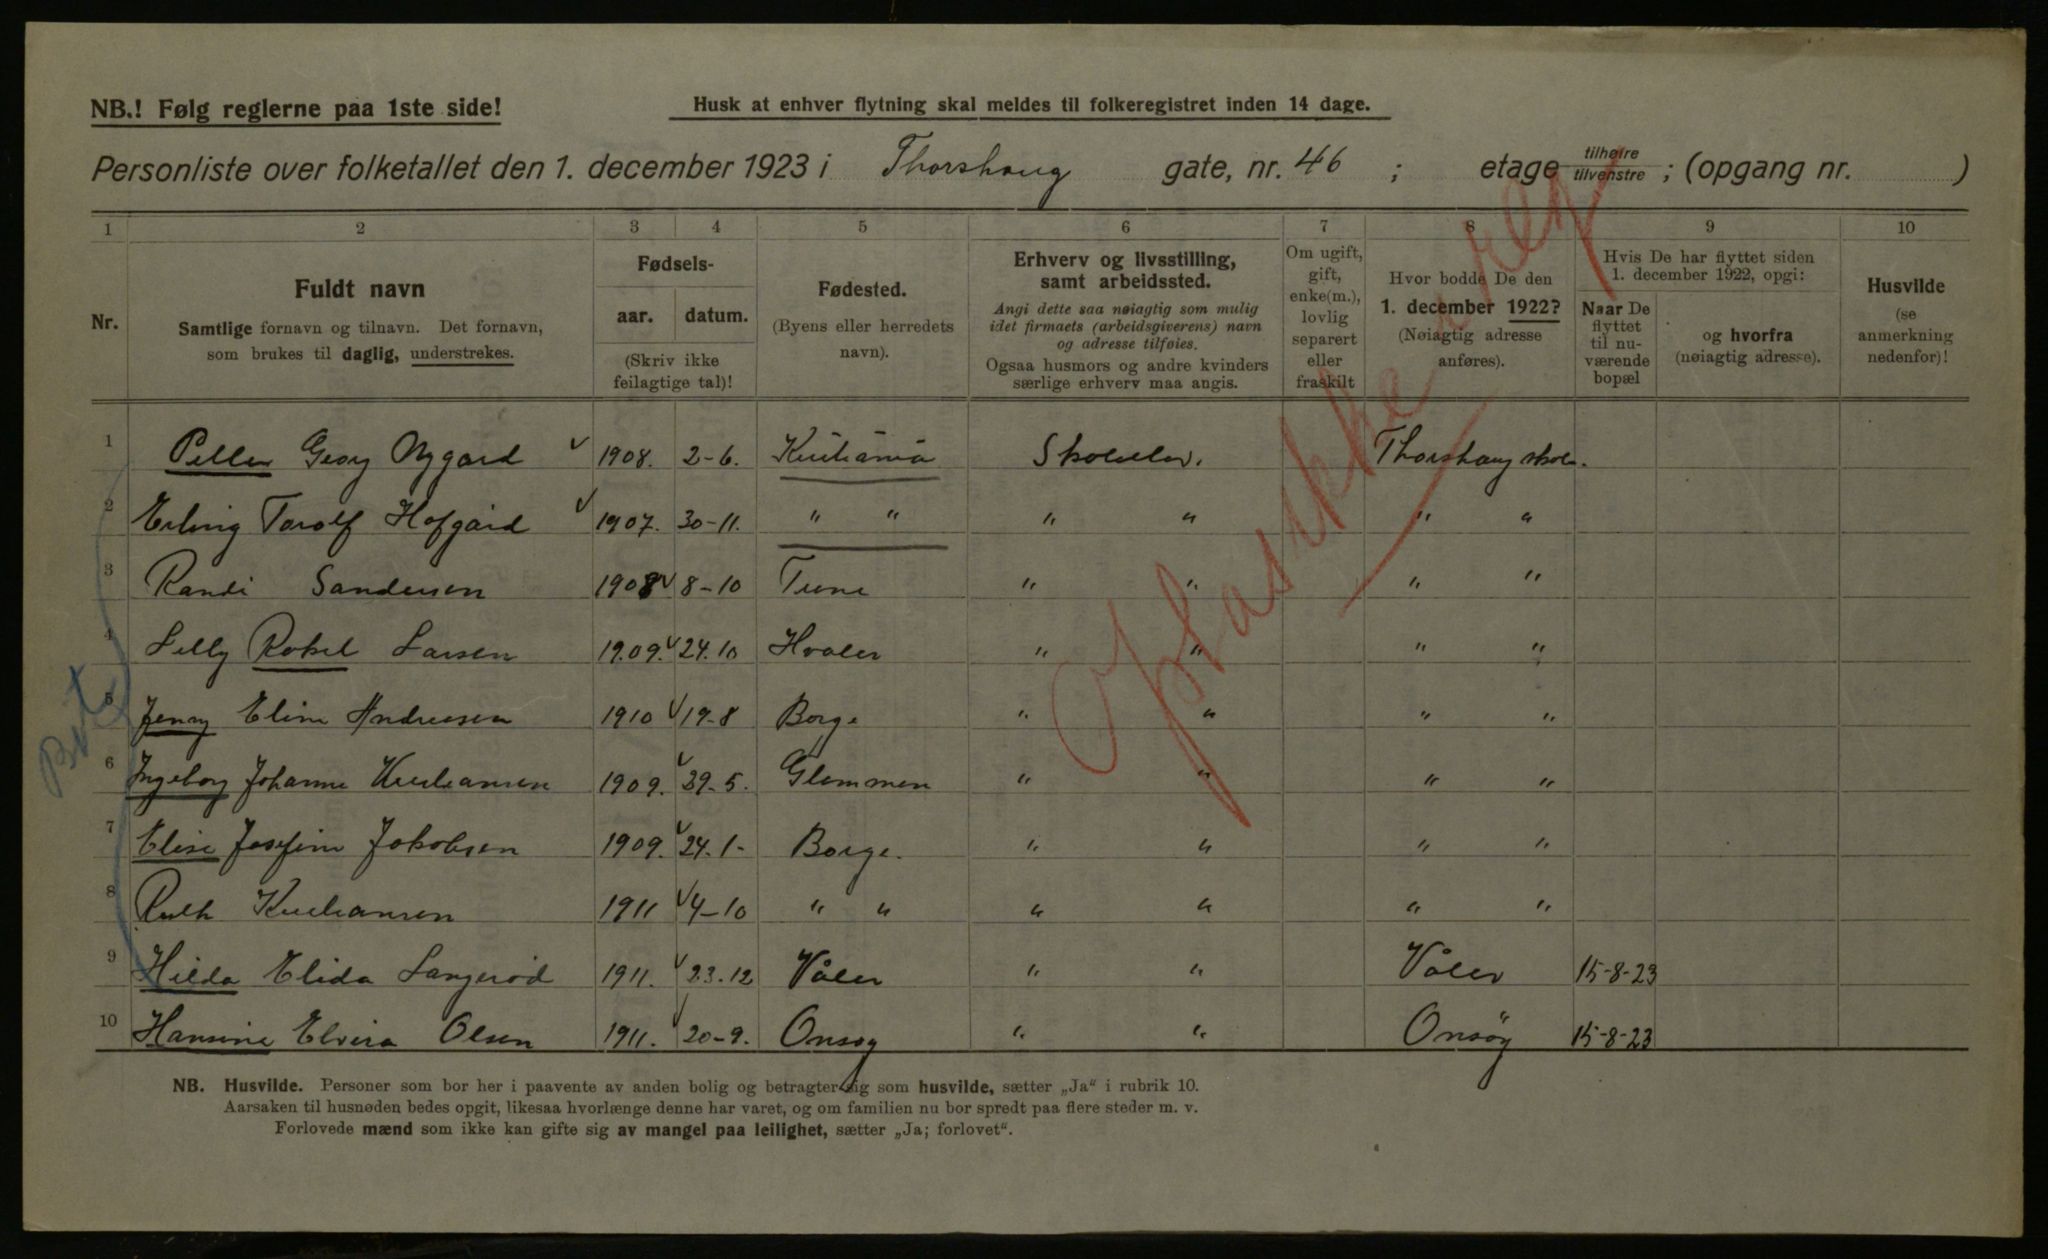 NB.! Følg reglerne paa 1ste side!
Husk at enhver flytning skal meldes til folkeregistret inden 14 dage.
Personliste over folketallet den 1. december 1923 i Thorshaug gate, nr. 46 ; etage tilhøire tilvenstre ; (opgang nr. )
1 2 3 4 5 6 7 8 9 10
Nr.
Fuldt navn
Samtlige fornavn og tilnavn. Det fornavn,
som brukes til daglig, understrekes.
Fødsels-
aar. datum.
(Skriv ikke
feilagtige tal)!
Fødested.
(Byens eller herredets
navn).
Erhverv og livsstilling,
samt arbeidssted.
Angi dette saa nøiagtig som mulig
idet firmaets (arbeidsgiverens) navn
og adresse tilføies.
Ogsaa husmors og andre kvinders
særlige erhverv maa angis.
Om ugift,
gift,
enke(m.),
lovlig
separert
eller
fraskilt
Hvor bodde De den
1. december 1922?
(Nøiagtig adresse
anføres).
Hvis De har flyttet siden
1. december 1922, opgi:
Naar De
flyttet
til nu-
værende
bopæl
og hvorfra
(nøiagtig adresse).
Husvilde
(se
anmerkning
nedenfor)!
1 Georg Nygard 1908. 2-6. Kristiania Skoleelev. Thorshaug skole.
2 Erling Torolf Hofgård 1907. 30-11. " " " " " "
3 Randi Sandersen 1908 8-10 Tune " " " "
4 Lilly Rakel Larsen 19.09. 24.10 Hvaler " " " "
5 Jenny Eline Andresen 1910 19-8 Borge " " " "
6 Ingeborg Johanne Kristiansen 1909. 29-5. Glemmen " " " "
7 Elise Josefine Jakobsen 1909. 24.1- Borge. " " " "
8 Ruth Kristiansen 1911 4-10 " " " " " "
9 Hilda Elida Langerød 1911. 23.12 Våler " " Våler 15-8-23
10 Hansine Elvira Olsen 1911. 20-9. Onsøy " " Onsøy 15-8-23
NB. Husvilde. Personer som bor her i paavente av anden bolig og betragter sig som husvilde, sætter „Ja“ i rubrik 10.
Aarsaken til husnøden bedes opgit, likesaa hvorlænge denne har varet, og om familien nu bor spredt paa flere steder m. v.
Forlovede mænd som ikke kan gifte sig av mangel paa leilighet, sætter „Ja; forlovet“.